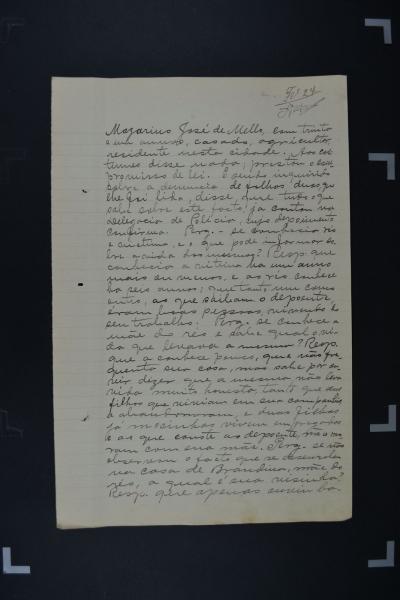 Fls 24
Mazarino José de Mello, com trinta
e um annos, casado, agricultor,
residente nesta cidade. Aos cos-
tumes disse nada; prestou o com-
promisso de lei. E sendo inquirido
sobre a denuncia de folhos duas que
lhe foi lida, disse, que tudo o que
sabe sobre este facto já contou na
delegacia de Policia, cujo depoimento
confirma. Perg. - se conhecia reo
e victima, e o que pode informar so-
bre a vida dos mesmos? Resp. que
conhecia a victima ha um anno
mais ou menos, e ao réo conhece
ha seis annos; que tanto um como
outro, ao que saiba o depoente,
eram boas pessoas, vivendo do
seu trabalho. Perg. se conhece a
mãe do réo e sabe qual a vi-
da que levava a mesma? Resp.
que a conhece pouco, que não fre-
quenta sua casa, mas sabe por ou-
vir dizer que a mesma não leva
vida muito honesta, tanto que dos
filhos que viviam em sua companhia
a abandonaram, e duas filhas
já mocinhas vivem empregadas
e ao que consta ao depoente, não mo-
ram com sua mãe. Perg. se não
observou o facto que se desenrolou
na casa de Brandina, mãe do
réo, a qual é sua visinha?
Resp. que apenas ouviu ba-